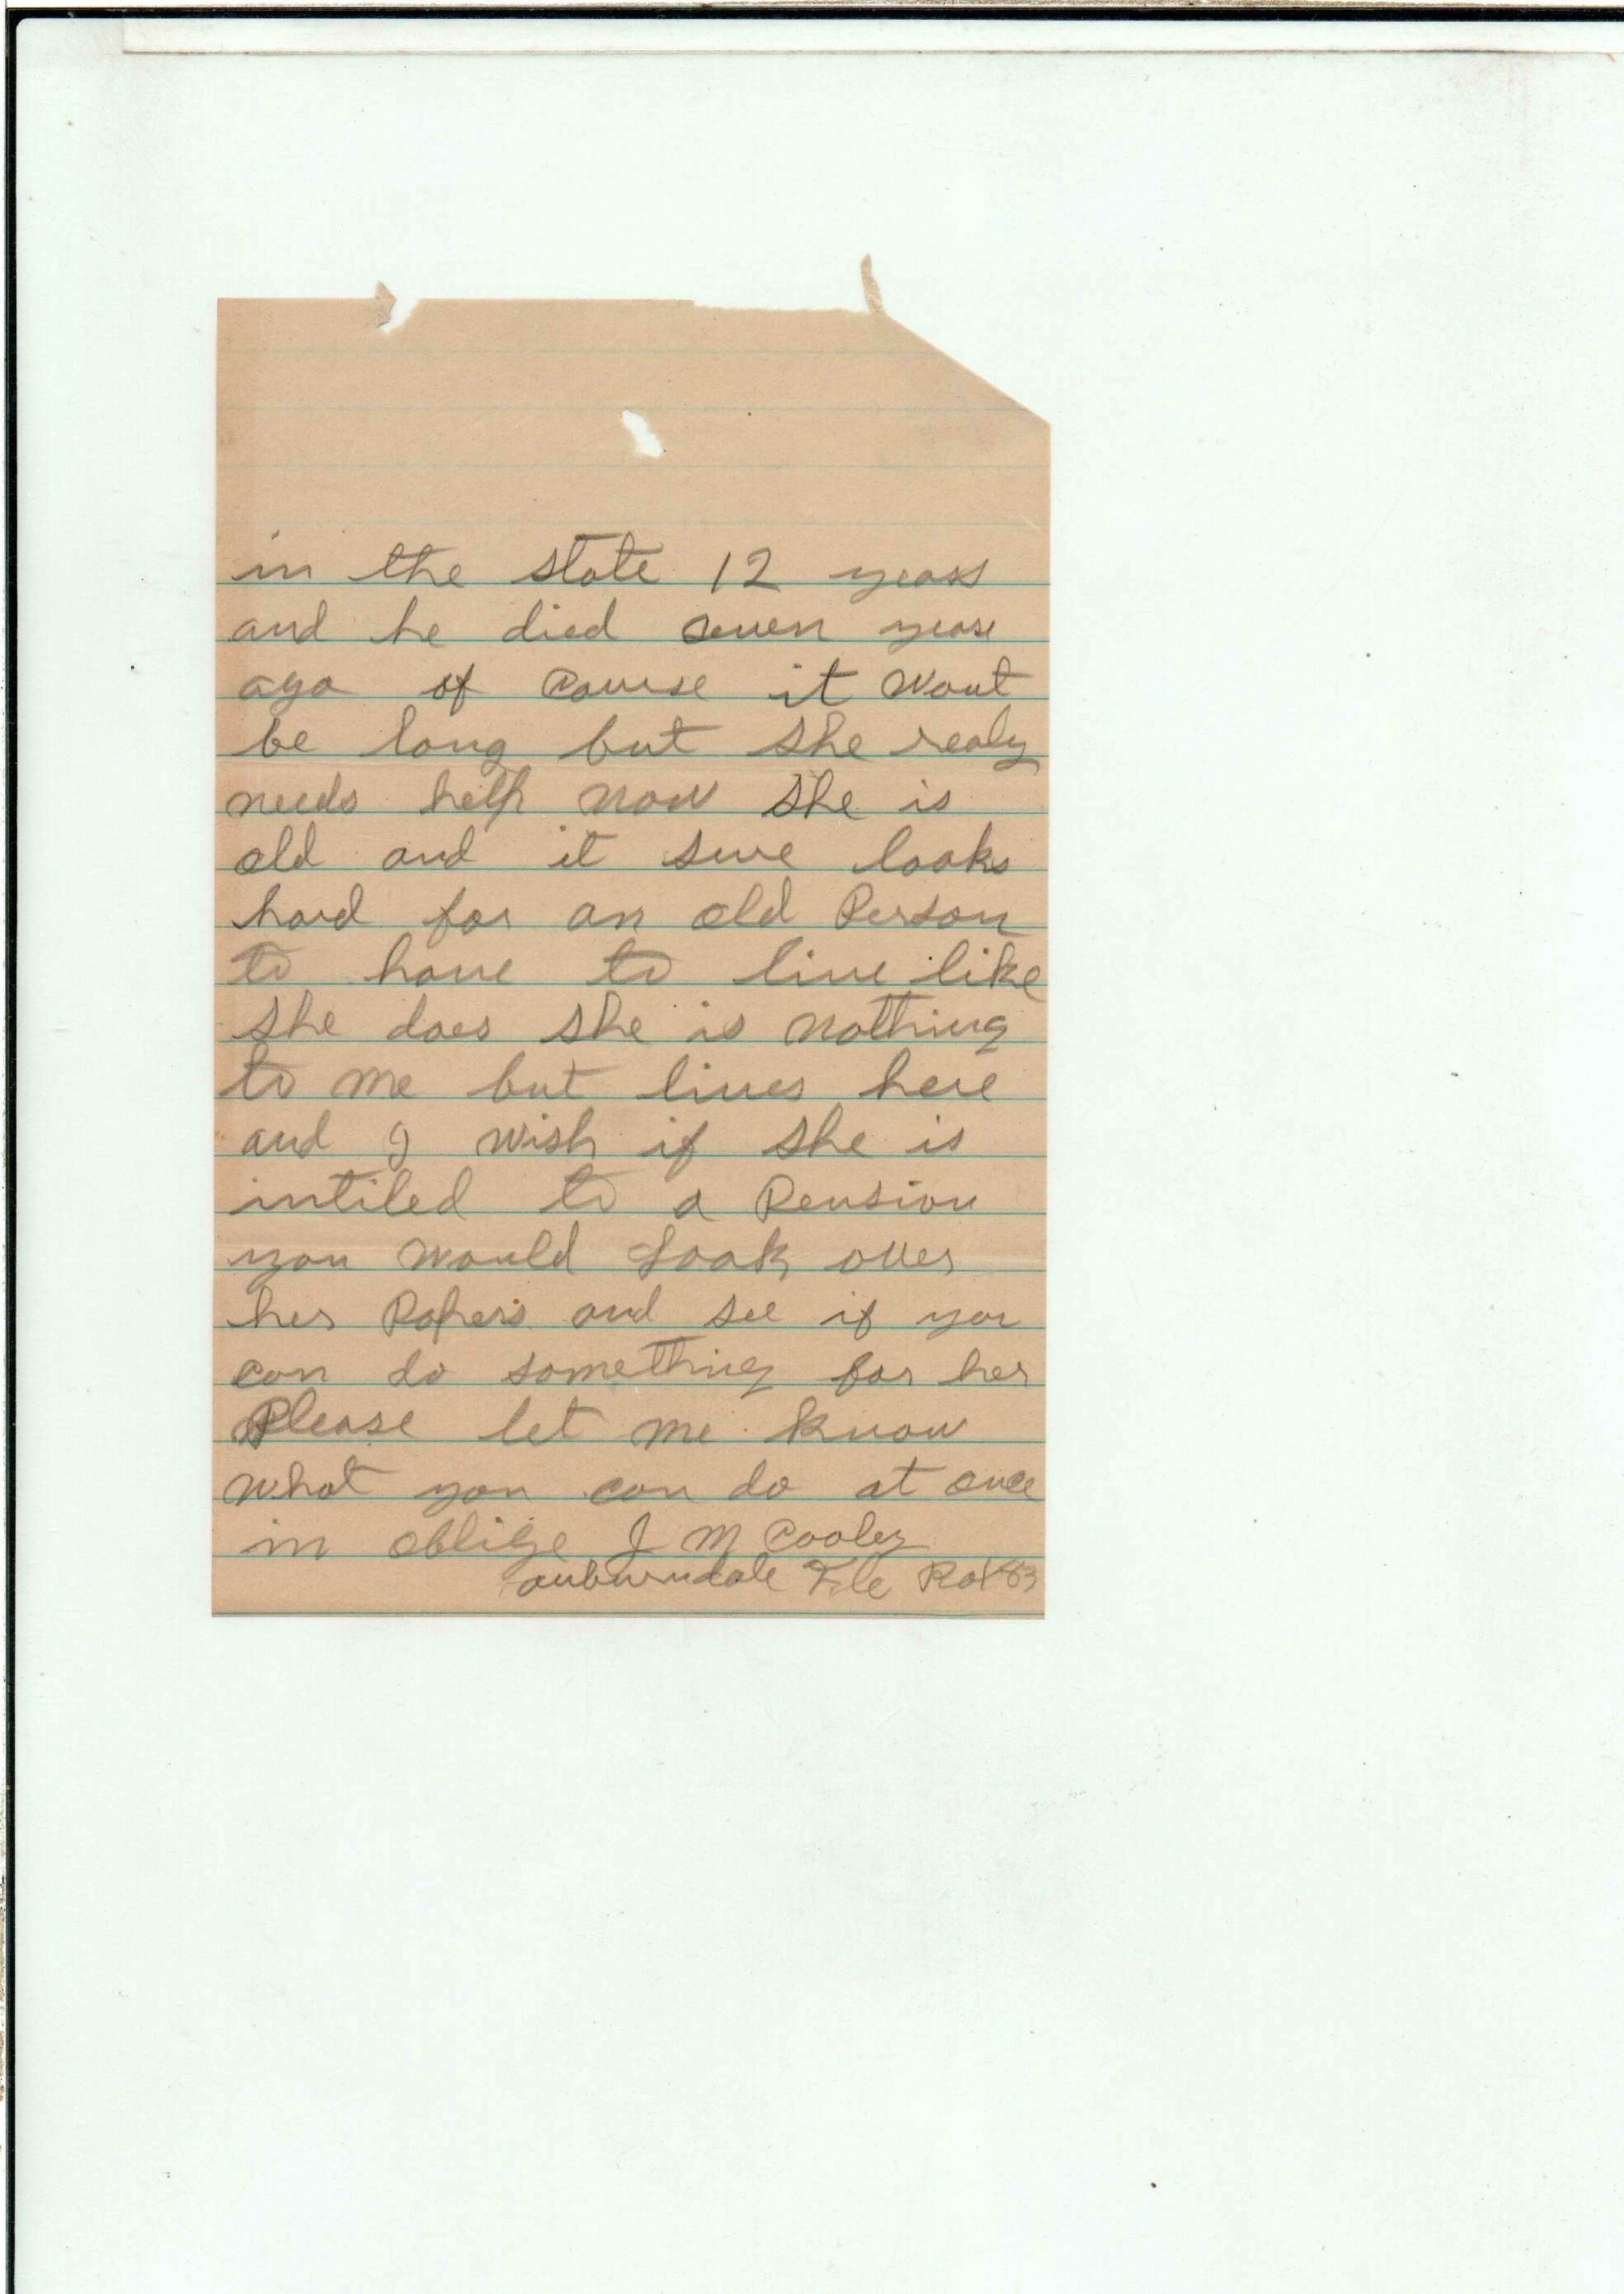 in the state 12 years
and he died seven years
ago of course it wont
be long but she realy
needs help now she is
old and it sure looks
hard for an old Person
to have to live like
she does she is nothing
to me but lives here
and I wish if she is
intiled to a Pension
you would Look over
her Papers and see if you
can do something for her
Please let me know
what you can do at once
in oblige J M Cooley
auburndale Fla Box 83